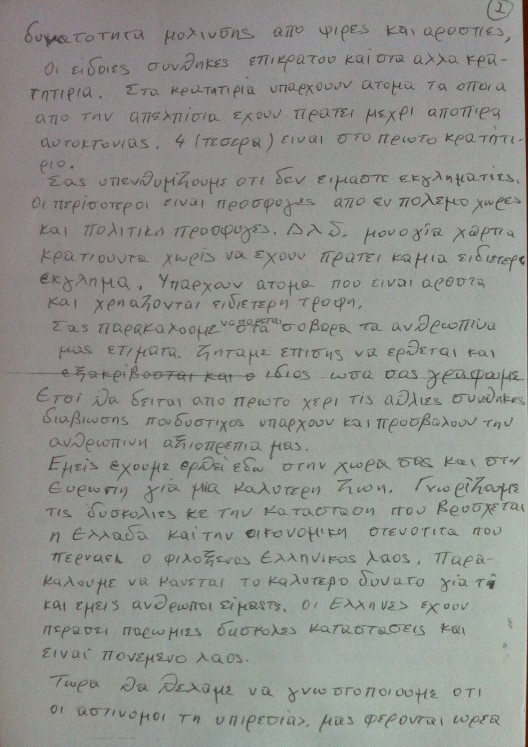 2
δυματοτητα μολινσης απο φιρες και αροστιες,
Οι είδοιες συνθηκες επικρατου και στα αλλα κρα-
τητιρια. Στα κρατητιρία υπαρχουυν ατομα τα οποια
απο την απελπίσια εχουν πρατει μεχρι αποπιρα
αυτοκτονιας. 4 (τεσερα) ειναι στο πρωτο κρατήτι-
ριο.
Σας υπενθυμίζουμε οτι δεν ειμαστε εκγληματίες.
Οι περίσοτεροι ειναι προσφυγες απο εν πολεμο χωρες
και πολιτικη προσφυγες. Δλδ. μονο για χαρτια
κρατιουντα χωρίς να εχουν πρατει καμια ειδιετερη
εκγλημα. Υπαρχουν ατομα που ειναι αροστα
και χρηαζονται ειδιετερη τροφη.
Σας παρακαλουμε να παρεται στα σοβαρα τα ανθρωπινα
μας ετιματα. Ζηταμε επισης να ερθεται και
εξακριβοσται και ο ιδιος ωσα σας γραφουμε
Ετσί θα δειται απο πρωτο χερι τις αθλιες συνθηκες
διαβιωσης πουδυστιχος υπαρχουν και προσβαλουν την
ανθρωπινη αξιοπρεπια μας.
Εμείς εχουμε ερθεί εδω στην χωρα σας και στην
Ευρωπη για μια καλυτερη ζιωη. Γνωρίζουμε
τις δυσκολιες κε την κατασταση που βρυσχεται
η Ελλαδα και την οικονομικη στενοτιτα που
περναει ο φιλοξενος Ελληνικος λαος. Παρα-
καλουμε να κανεται το καλυτερο δυνατο για τι
και εμεις ανθρωποι είμαστε. Οι Ελληνες εχουν
περασει παρωμιες δισκολες καταστασεις και
ειναι πονεμενο λαος.
Τωρα θα θελαμε να γνωστοποιουμε οτι
οι αστινομοι τη υπιρεσίας, μας φερονται ωρεα